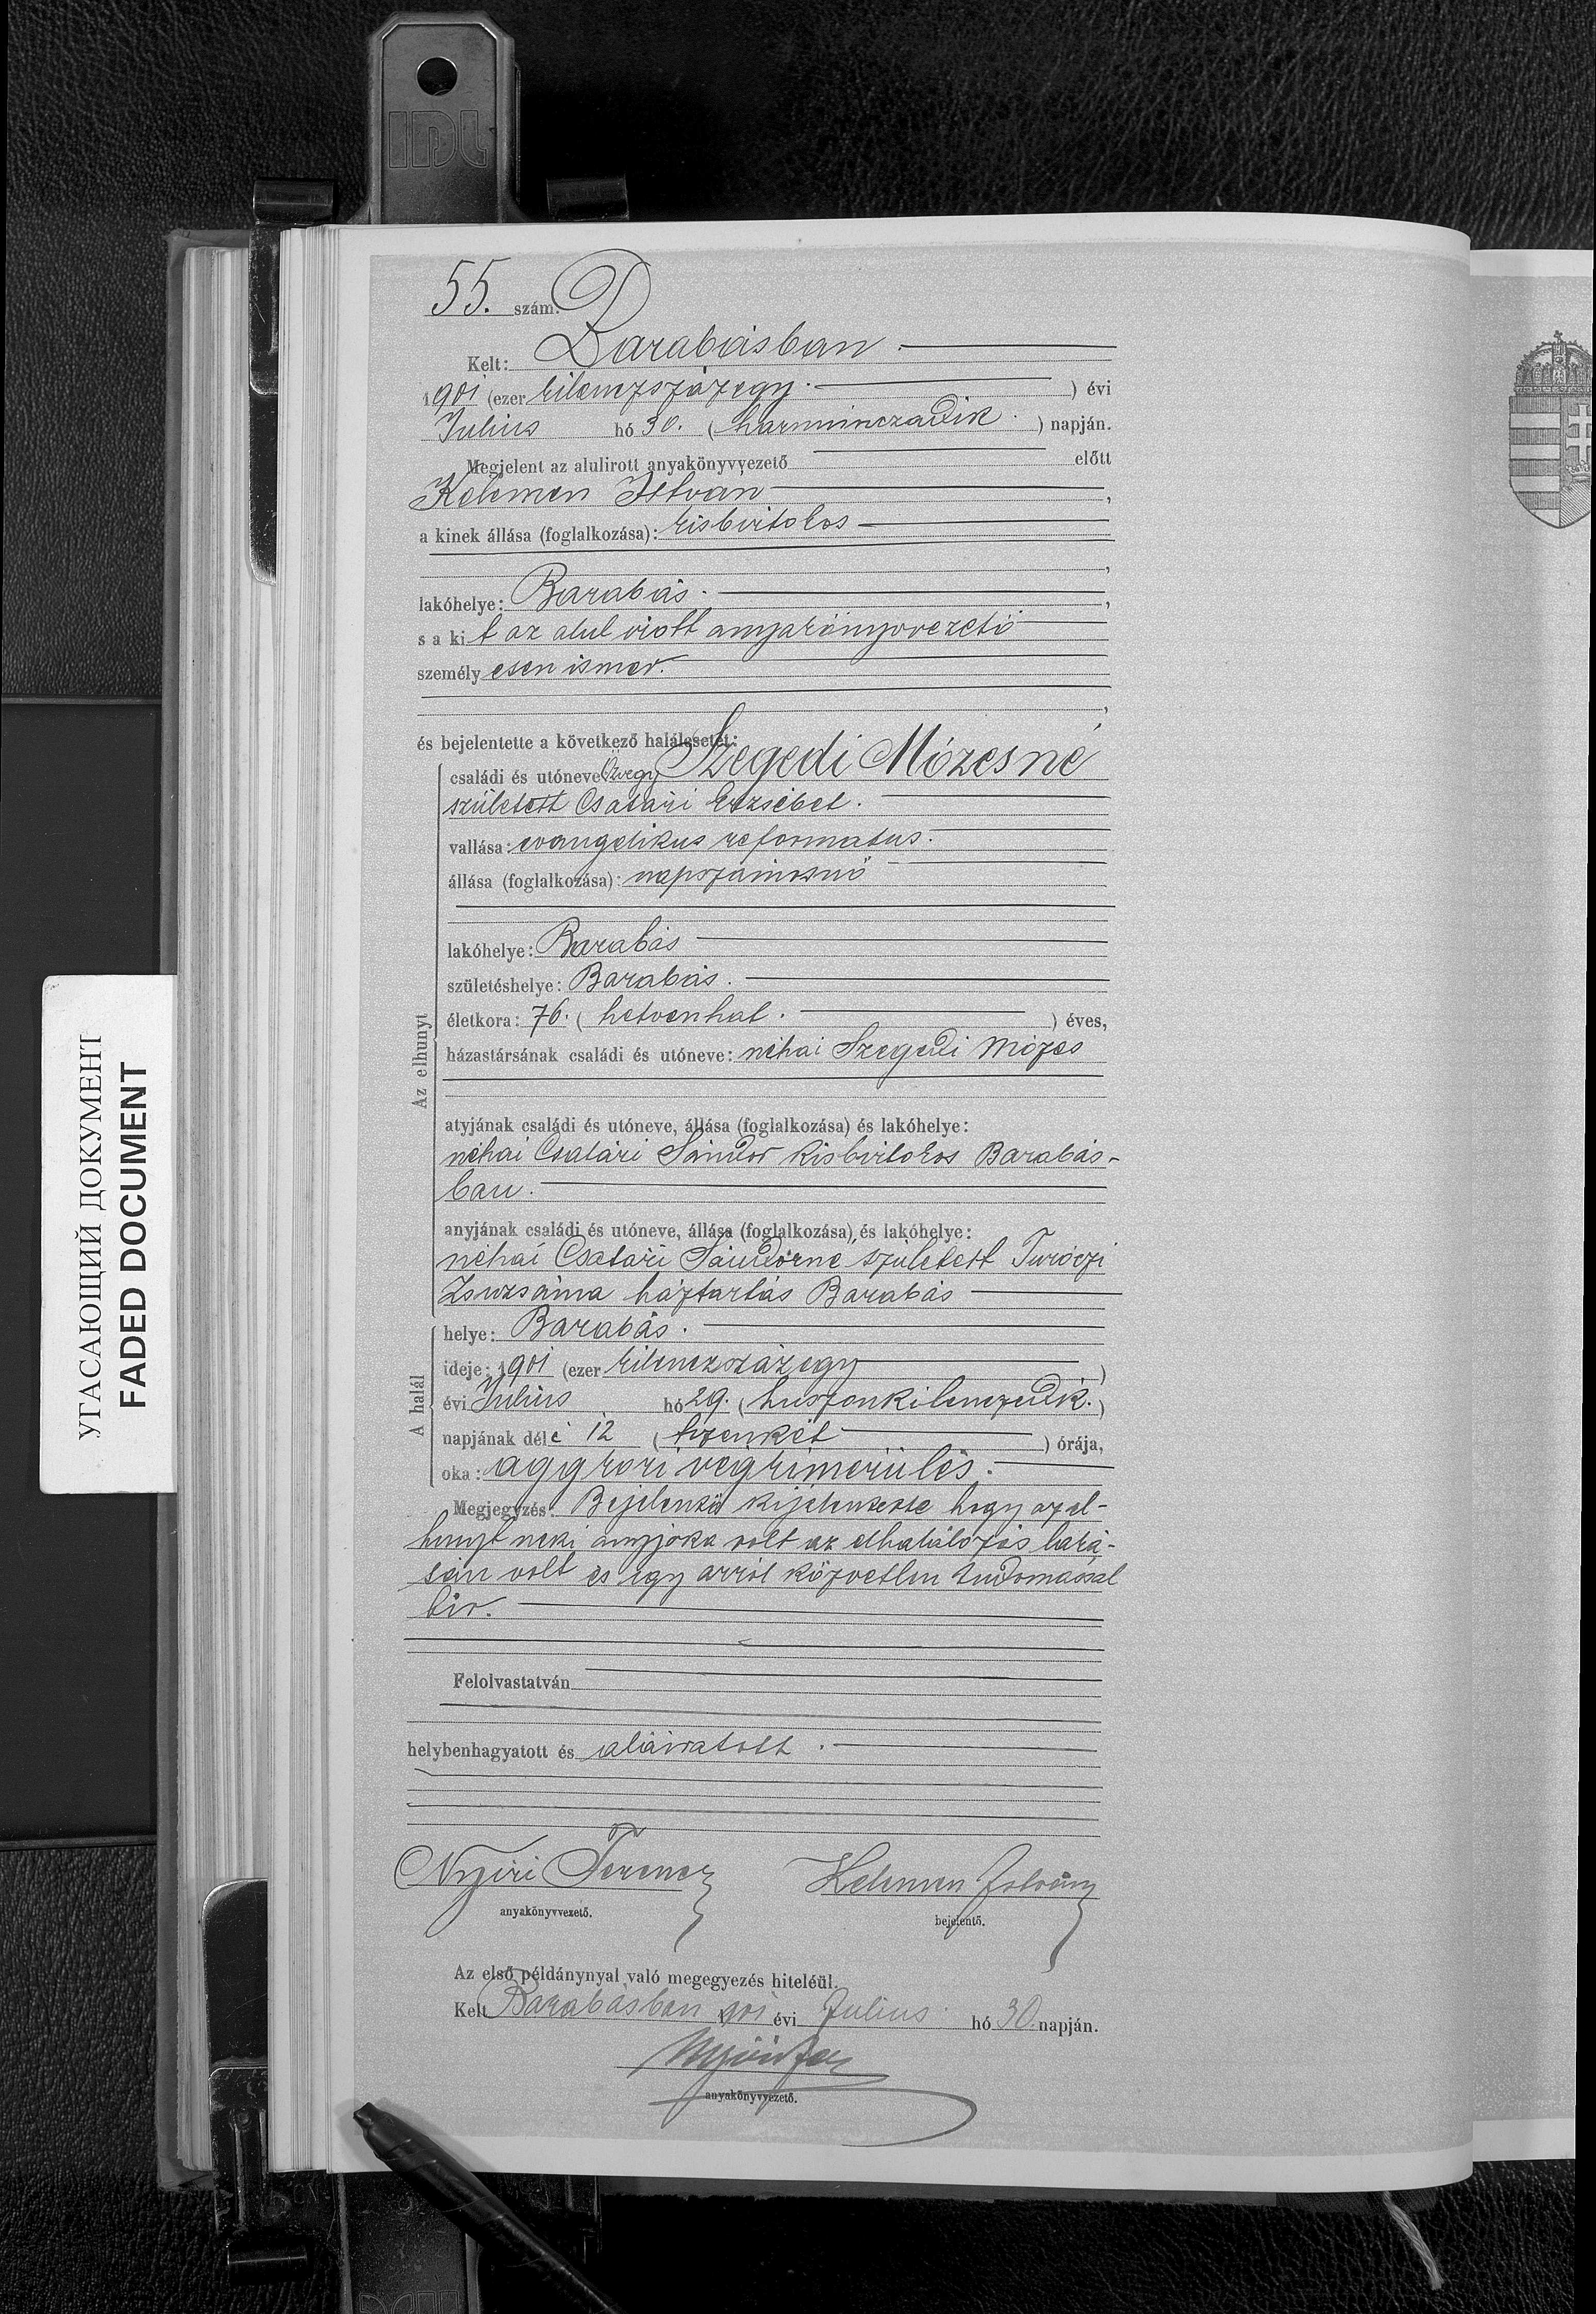 IDL
55. szám.
Kelt: Barabásban
1901 (ezer kilenczszázegy) évi
Julius hó 30. (harminczadik) napján.
Megjelent az alulirott anyakönyvvezető előtt
Kelemen István,
a kinek állása (foglalkozása): kisbirtokos
lakóhelye: Barabás.,
s a kit az alul irott anyakönyvvezető
személyesen ismer.
és bejelentette a következő halálesetet:
Az elhunyt
családi és utóneve: Özvegy Szegedi Mózesné
született Csatári Erzsébet.
vallása: evangelikus reformatus.
állása (foglalkozása): napszámosnő
lakóhelye: Barabás
születéshelye: Barabás.
életkora: 76. (hetvenhat.) éves,
házastársának családi és utóneve: néhai Szegedi Mózes
atyjának családi és utóneve, állása (foglalkozása) és lakóhelye:
néhai Csatári Sándor kisbirtokos Barabás-
ban.
anyjának családi és utóneve, állása (foglalkozása) és lakóhelye:
néhai Csatári Sándorné született Turóczi
Zsuzsánna háztartás Barabás
A halál
helye: Barabás.
ideje: 1901 (ezer kilenczszázegy)
évi Julius hó 29. (huszonkilenczedik.)
napjának dél e 12 (tizenkét) órája,
oka: aggkori végkimerülés.
Megjegyzés: Bejelentő kijelentette hogy az el-
hunyt neki anyjoka volt az elhalálozás laká-
sán volt és igy arról közvetlen tudomással
bir.
Felolvastatván
helybenhagyatott és aláiratott.
Nyiri Ferencz Kelemen István
anyakönyvvezető. bejelentő.
Az első példánynyal való megegyezés hiteléül.
Kelt Barabásban 1901 évi Julius hó 30 napján.
anyakönyvvezető.
УГАСАЮЩИЙ ДОКУМЕНТ
FADED DOCUMENT